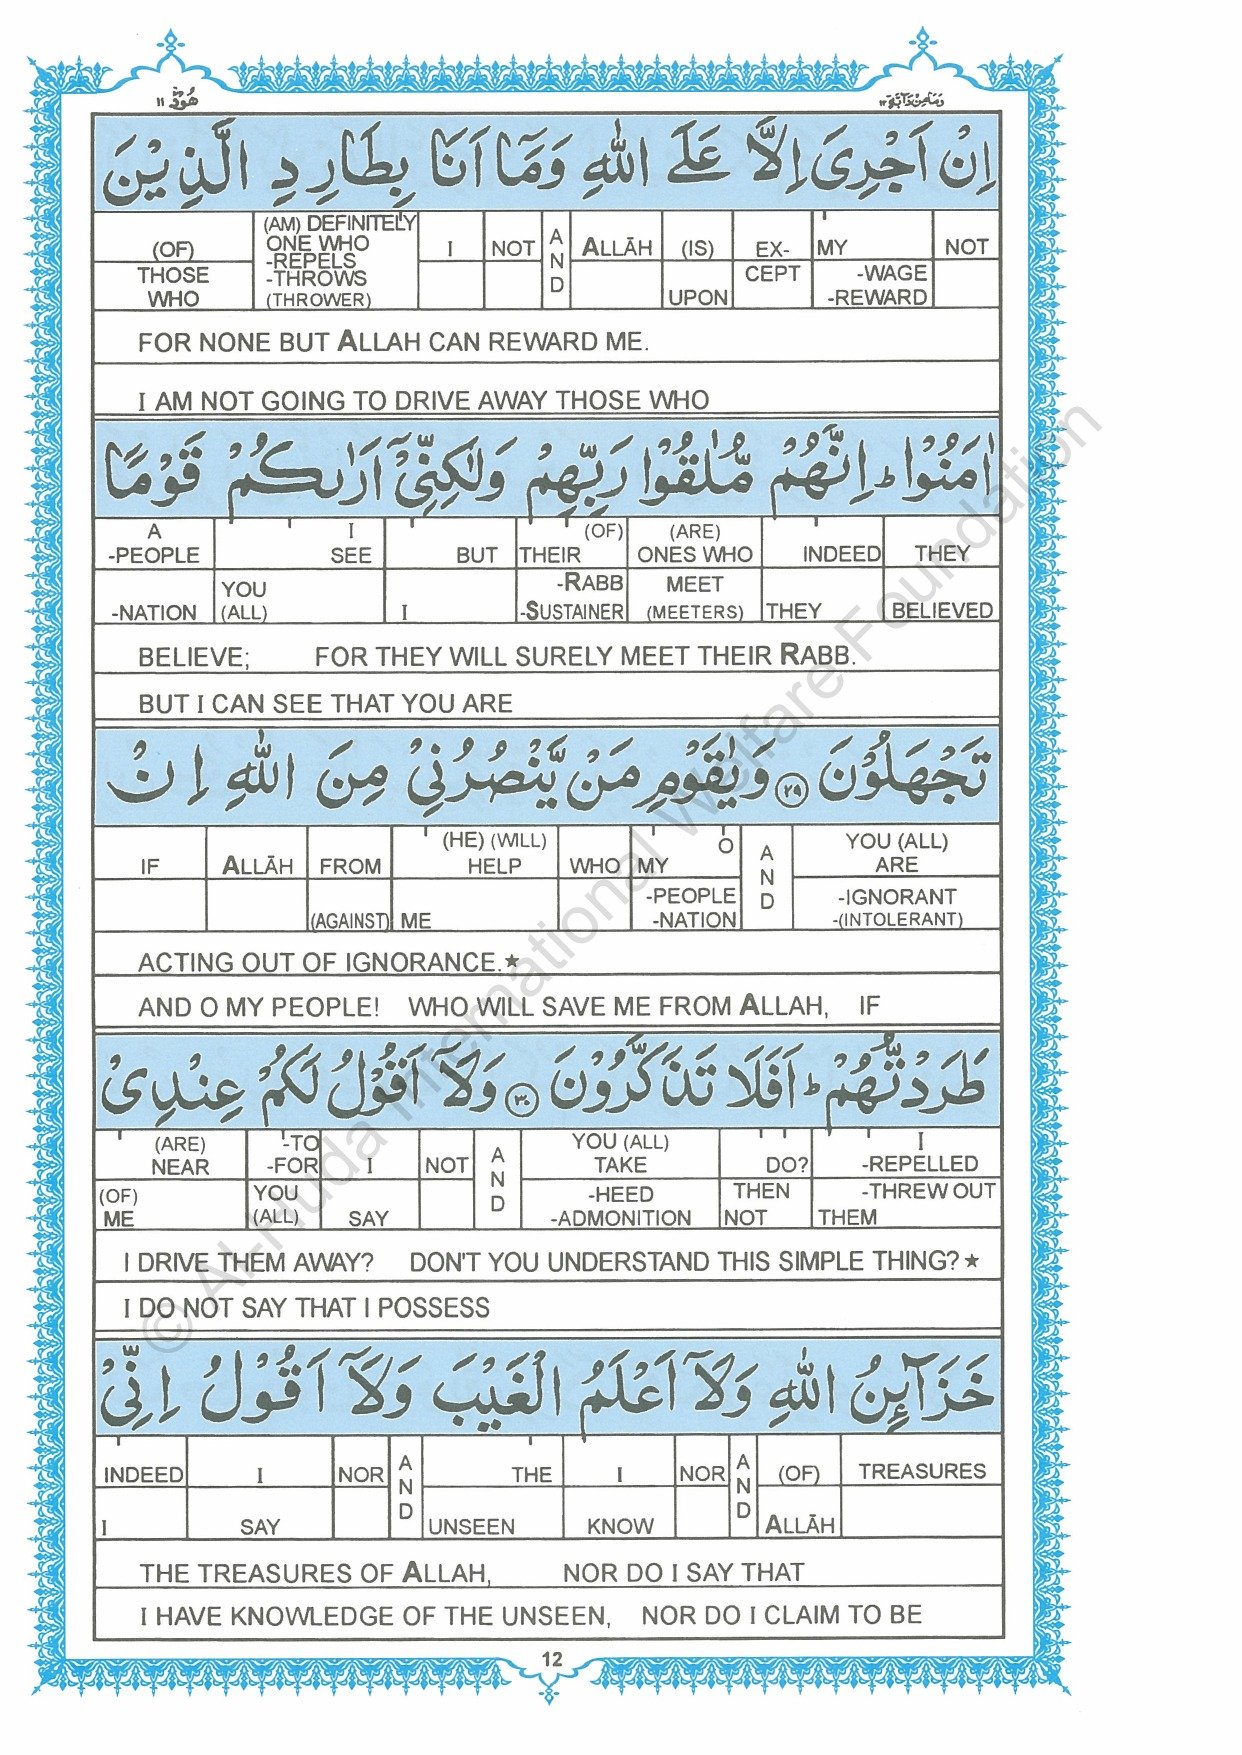 هُوْد ۱۱
وَمَا مِنْ دَآبَّةٍ ۱۲
اِنْ اَجْرِىَ اِلَّا عَلَى اللّٰهِ وَمَآ اَنَا بِطَارِدِ الَّذِيْنَ
(OF) (AM) DEFINITELY ONE WHO -REPELS -THROWS (THROWER) I NOT AND ALLĀH (IS) EX- MY NOT
THOSE WHO UPON CEPT -WAGE -REWARD
FOR NONE BUT ALLAH CAN REWARD ME.
I AM NOT GOING TO DRIVE AWAY THOSE WHO
اٰمَنُوْا ؕ اِنَّهُمْ مُّلٰقُوْا رَبِّهِمْ وَلٰكِنِّىْٓ اَرٰىكُمْ قَوْمًا
A -PEOPLE I SEE BUT (OF) THEIR (ARE) ONES WHO INDEED THEY
-NATION YOU (ALL) I -RABB -SUSTAINER MEET (MEETERS) THEY BELIEVED
BELIEVE; FOR THEY WILL SURELY MEET THEIR RABB.
BUT I CAN SEE THAT YOU ARE
تَجْهَلُوْنَ ۲۹ وَيٰقَوْمِ مَنْ يَّنْصُرُنِىْ مِنَ اللّٰهِ اِنْ
IF ALLĀH FROM (HE) (WILL) HELP WHO O MY AND YOU (ALL) ARE
(AGAINST) ME -PEOPLE -NATION -IGNORANT -(INTOLERANT)
ACTING OUT OF IGNORANCE.★
AND O MY PEOPLE! WHO WILL SAVE ME FROM ALLAH, IF
طَرَدْتُّهُمْ ؕ اَفَلَا تَذَكَّرُوْنَ ۳۰ وَلَآ اَقُوْلُ لَكُمْ عِنْدِىْ
(ARE) NEAR -TO -FOR I NOT AND YOU (ALL) TAKE DO? I -REPELLED
(OF) ME YOU (ALL) SAY -HEED -ADMONITION THEN NOT -THREW OUT THEM
I DRIVE THEM AWAY? DON'T YOU UNDERSTAND THIS SIMPLE THING?★
I DO NOT SAY THAT I POSSESS
خَزَآئِنُ اللّٰهِ وَلَآ اَعْلَمُ الْغَيْبَ وَلَآ اَقُوْلُ اِنِّىْ
INDEED I NOR AND THE I NOR AND (OF) TREASURES
I SAY UNSEEN KNOW ALLĀH
THE TREASURES OF ALLAH, NOR DO I SAY THAT
I HAVE KNOWLEDGE OF THE UNSEEN, NOR DO I CLAIM TO BE
12
© Al-Huda International Welfare Foundation